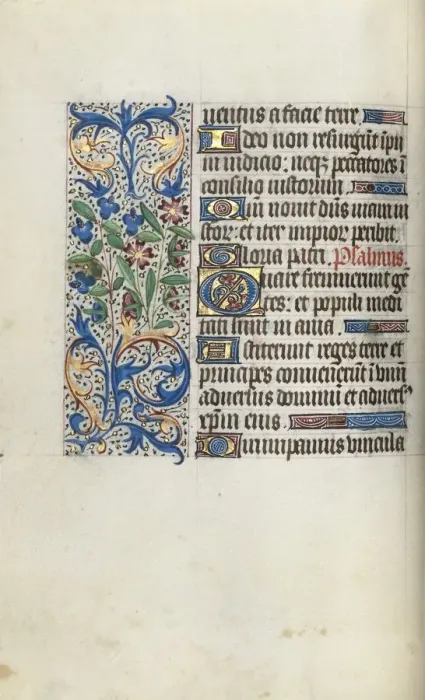 uentus a facie terre
Ideo non resurgūt ipii
in iudicio: neqz peccatores ī
consilio iustorum
Qm̄ nouit dn̄s uiam iu
stor: et iter impior peribit.
Gloria patri. Psalmus.
Quare fremuerunt gē
tes: et populi medi
tati sunt in ania.
Astiterunt reges terre et
principes conuenerūt ī vnū
aduersus dominū et aduers9
xp̄m eius.
Dirumpamus vincula